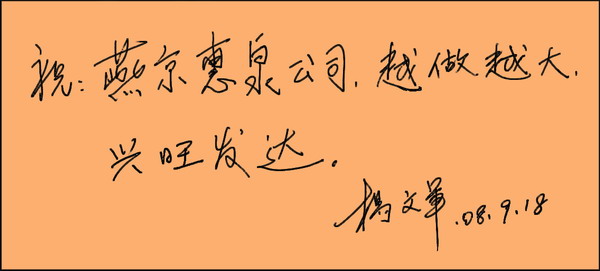 祝：燕京惠泉公司，越做越大，
兴旺发达。
杨文军.08.9.18